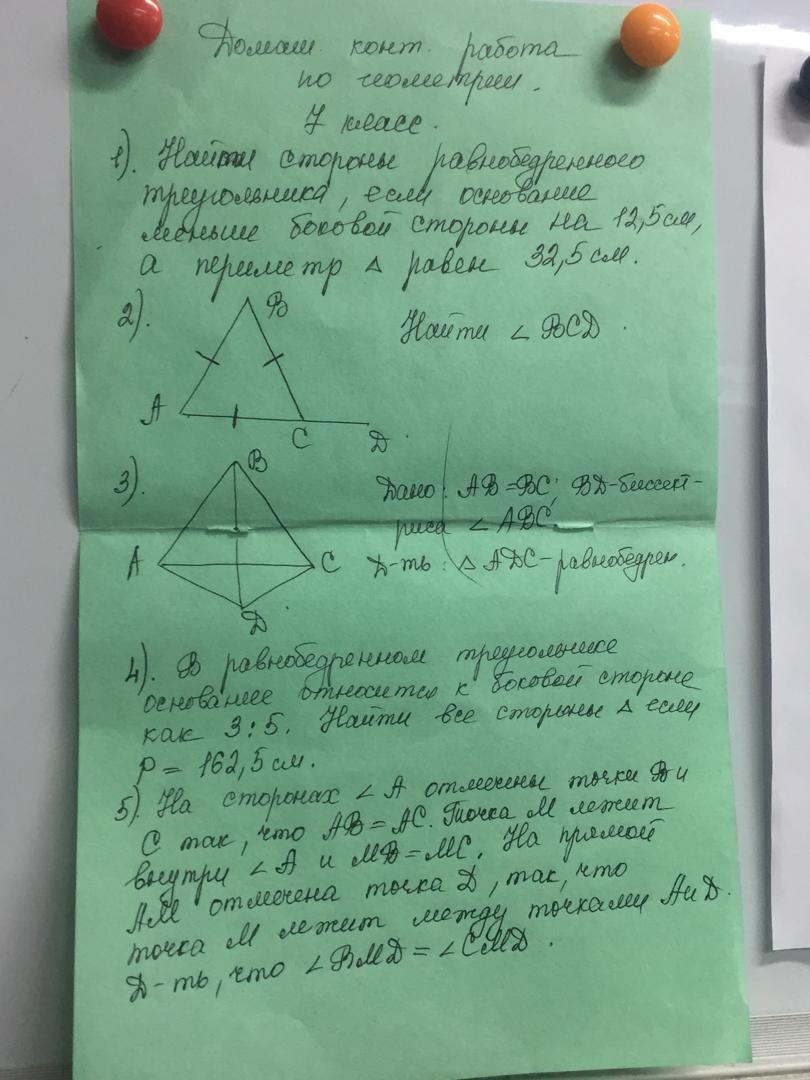 Домаш. конт. работа
по геометрии.
7 класс.
1). Найти стороны равнобедренного
треугольника, если основание
меньше боковой стороны на 12,5 см,
а периметр △ равен 32,5 см.
2).
B
Найти ∠ BCD.
A
C
D
3).
B
Дано: AB = BC; BD-биссект-
риса ∠ ABC.
A
C
Д-ть: △ ADC - равнобедрен.
D
4). В равнобедренном треугольнике
основание относится к боковой стороне
как 3:5. Найти все стороны △ если
P = 162,5 см.
5). На сторонах ∠ A отмечены точки B и
C так, что AB = AC. Точка M лежит
внутри ∠ A и MB = MC. На прямой
AM отмечена точка D, так, что
точка M лежит между точками A и D.
Д-ть, что ∠ BMD = ∠ CMD.